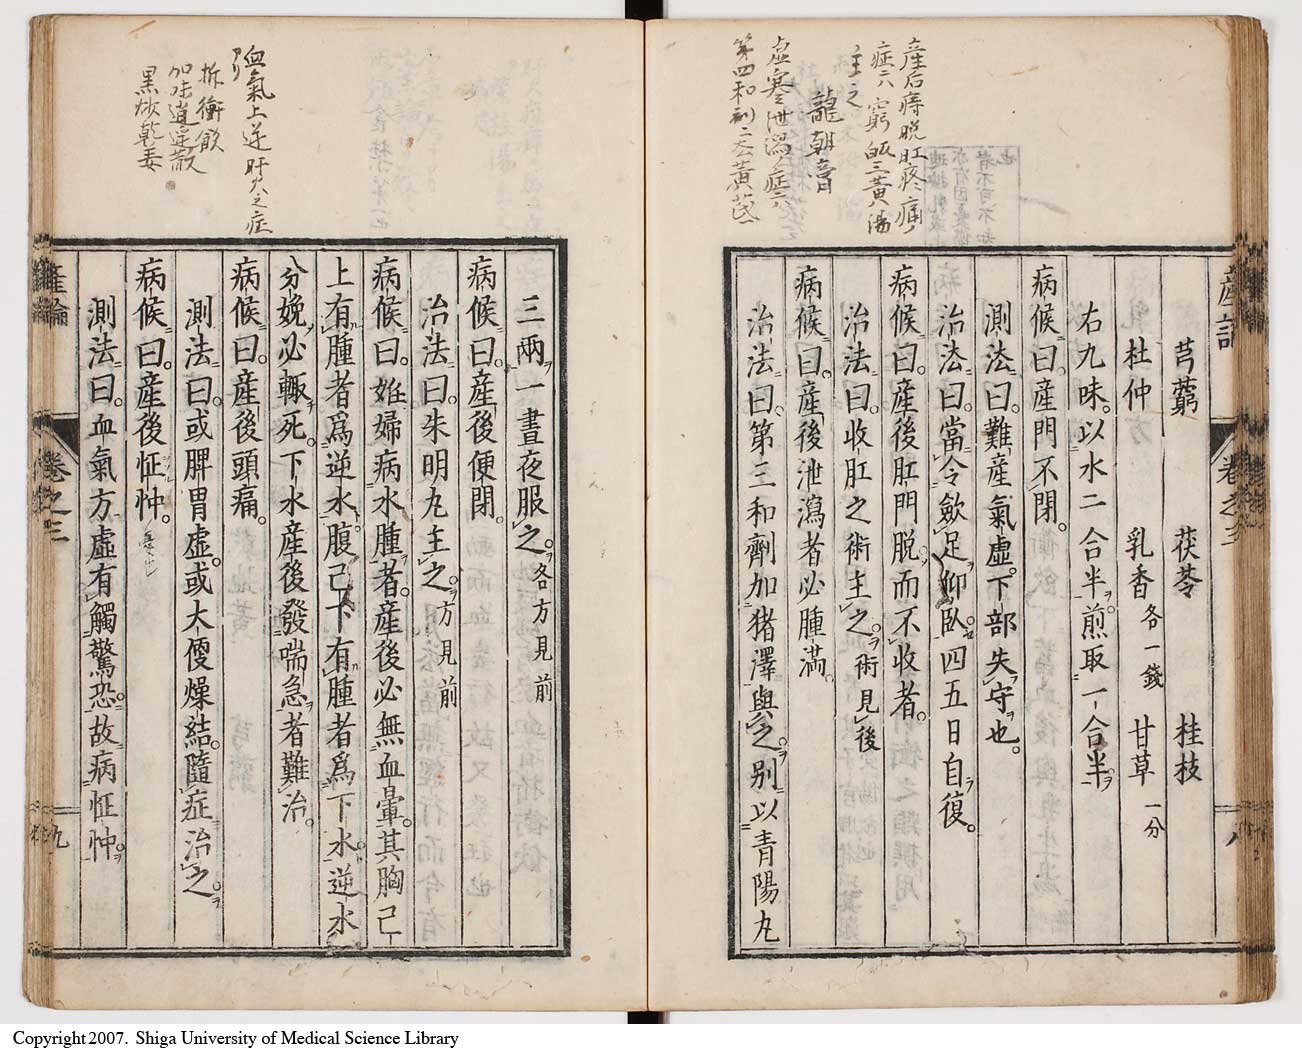 産后痔脱肛疼痛ノ
症ハ窮皈三黄湯
主之
龍朝膏
虚寒泄瀉ノ症ハ
第四和剤ニ去黄芪
芎藭　茯苓　桂枝
杜仲　乳香各一錢　甘草一分
右九味。以水二合半。煎取一合半。
病候曰。産門不閉。
測法曰。難産氣虛。下部失守也。
治法曰。當令歛足仰卧。四五日自復。
病候曰。産後肛門脱。而不收者。
治法曰。收肛之術主之。術見後
病候曰。産後泄瀉者必腫滿。
治法曰。第三和劑加猪澤與之。別以青陽丸
産論　卷之三　八
血氣上逆肝火之症
アリ
折衝飲
加味逍遥散
黒炒乾姜
三兩。一晝夜服之。各方見前
病候曰。産後便閉。
治法曰。朱明丸主之。方見前
病候曰。姙婦病水腫者。産後必無血暈。其胸已
上有腫者爲逆水。腹已下有腫者爲下水。逆水
分娩必輙死。下水産後發喘急者難治。
病候曰。産後頭痛。
測法曰。或脾胃虛。或大便燥結。隨症治之。
病候曰。産後怔忡。
測法曰。血氣方虛。有觸驚恐。故病怔忡。
産論　卷之三　九
Copyright 2007. Shiga University of Medical Science Library